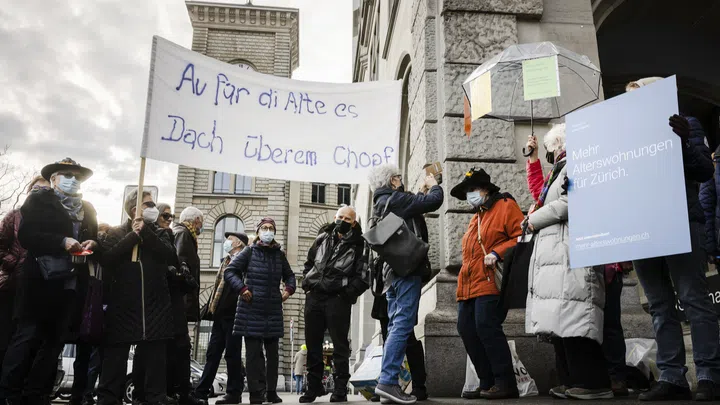 Au für di Alte es
Dach überem Chopf
Mehr
Alterswohnungen
für Zürich.